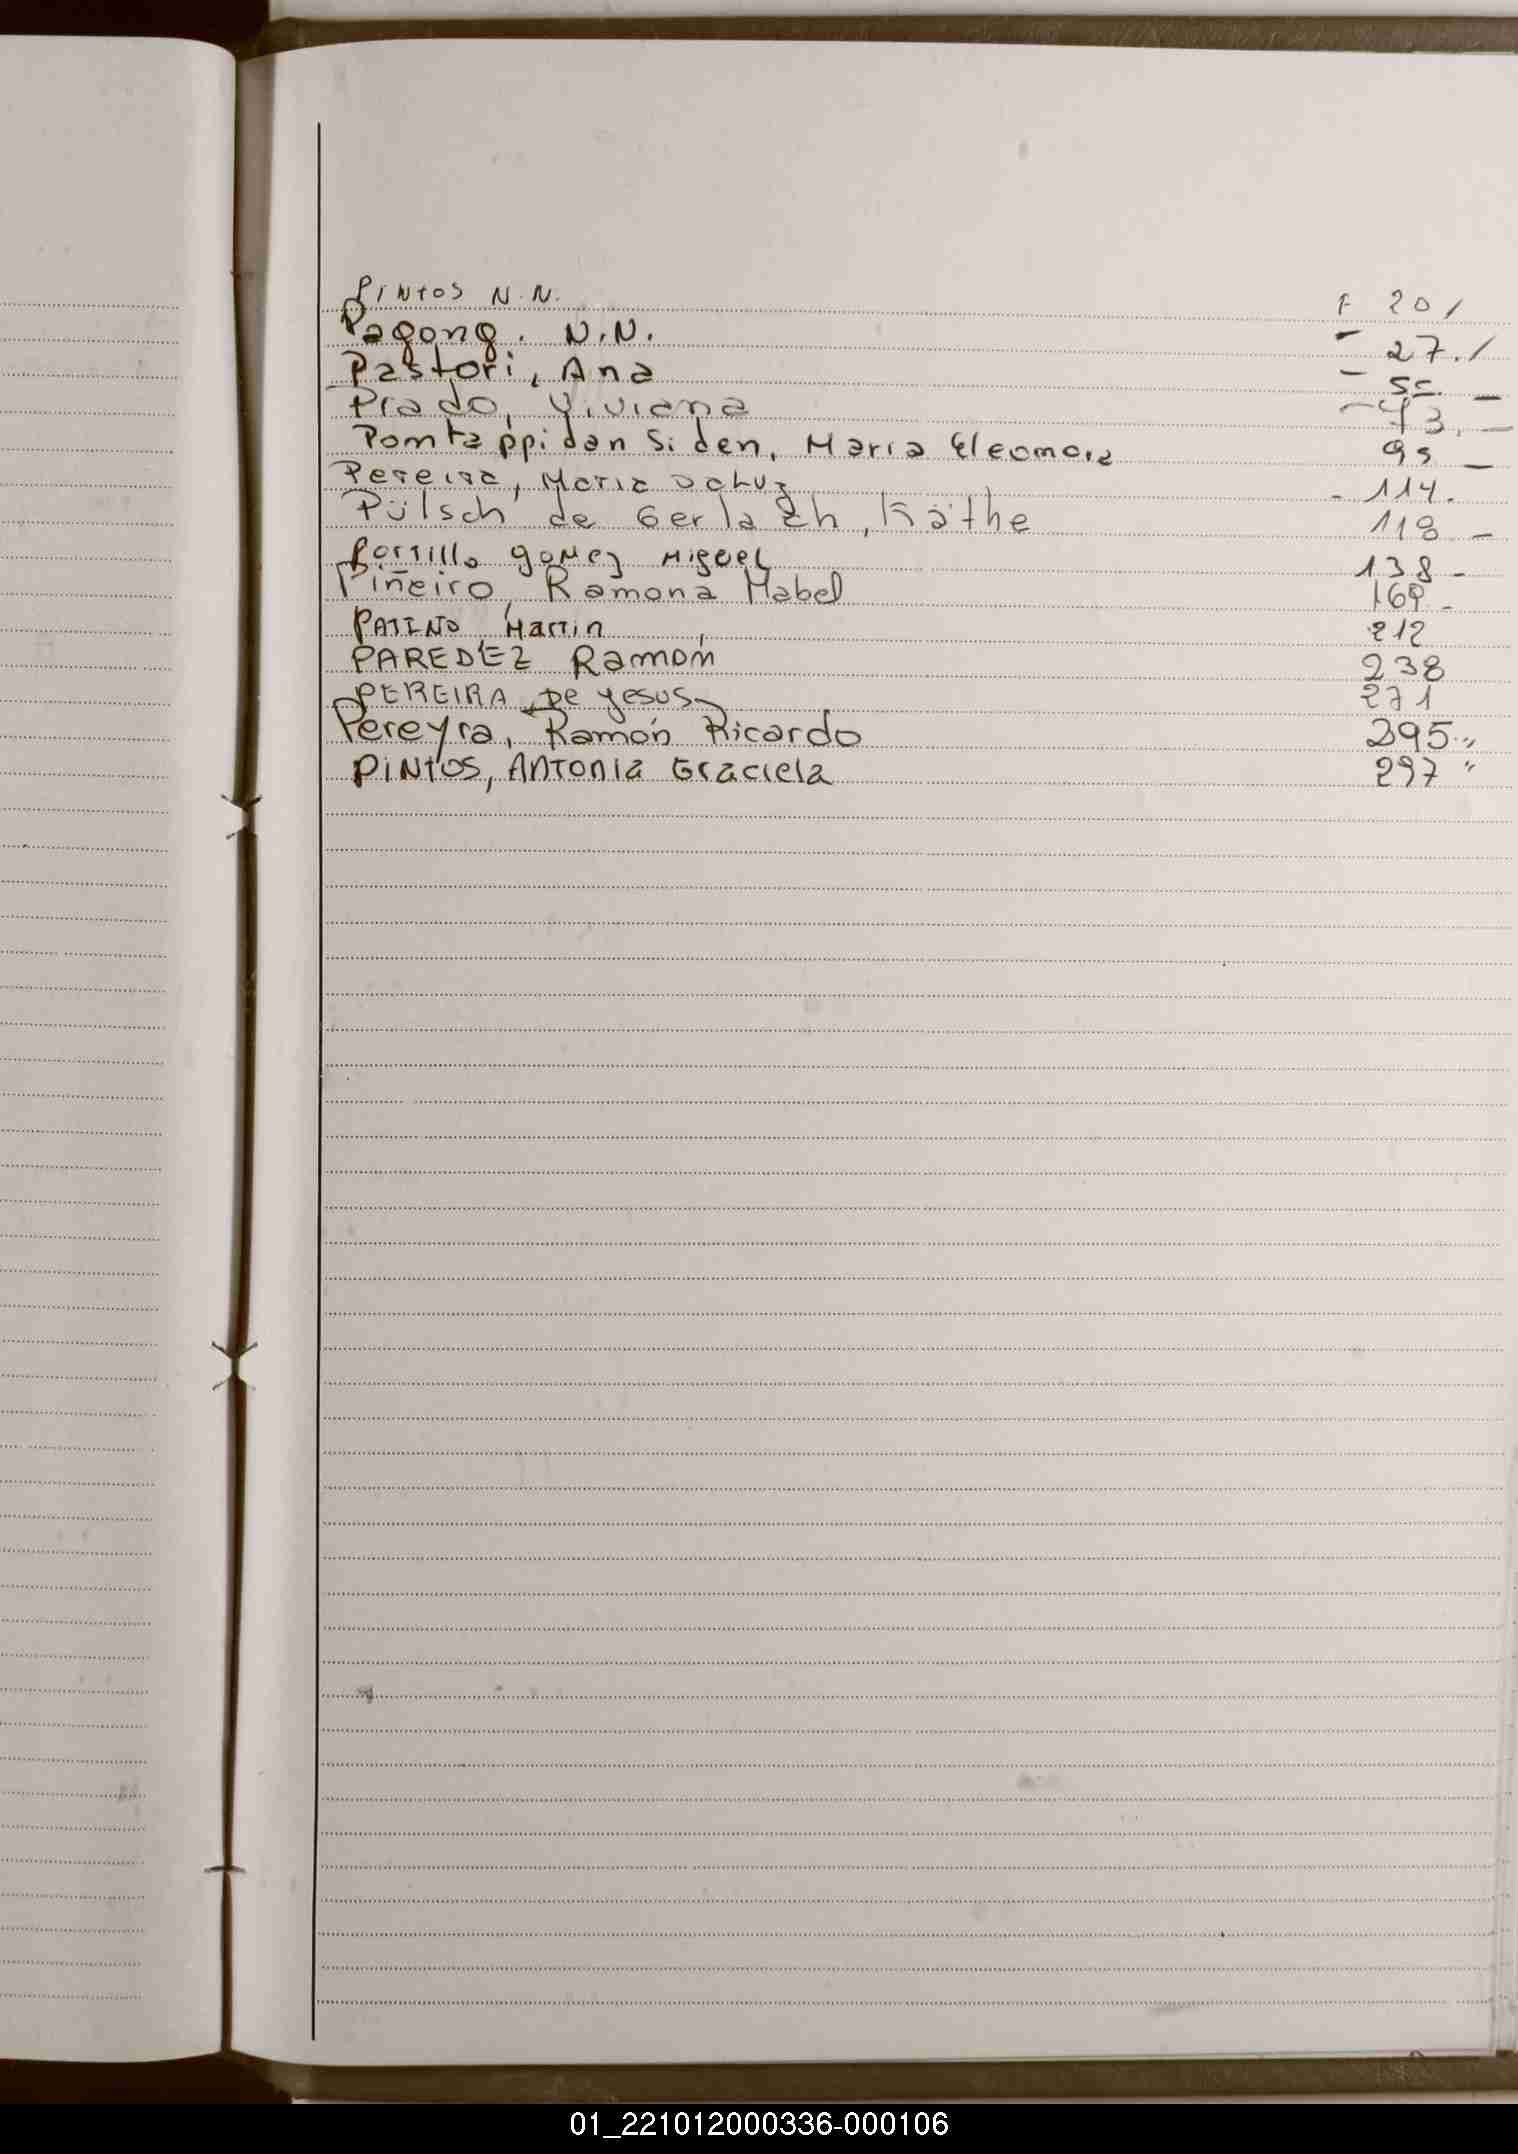 PINTOS N.N. F 20 /
Pagong. N.N. - 27. /
Pastori, Ana - 55 -
Prado, Viviana - 73. -
Pomtappidan Siden, Maria Eleomora 95 -
Pereira, Maria DaLuz - 114.
Pülsch de Gerlach, Käthe 118 -
Portillo gomez Miguel 138 -
Piñeiro, Ramona Mabel 169 -
PATINO, Martin 212
PAREDEZ Ramón 238
PEREIRA De Jesus 271
Pereyra, Ramón Ricardo 295 "
PINTOS, ANTONIA Graciela 297 "
01_221012000336-000106